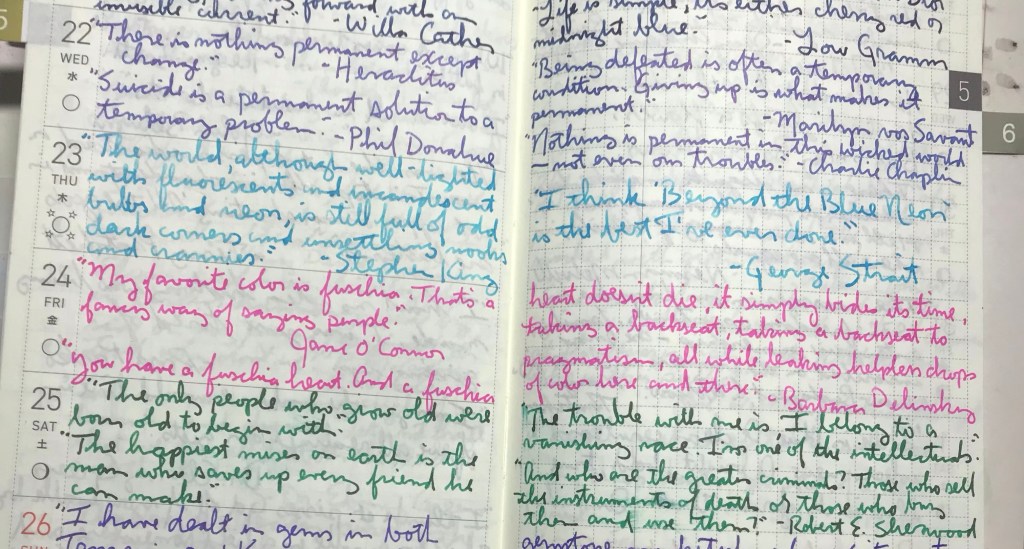 5
invisible current." - Willa Cather
22
WED
水
"There is nothing permanent except
change." - Heraclitus
"Suicide is a permanent solution to a
temporary problem." - Phil Donahue
23
THU
木
"The world, although well-lighted
with fluorescents and incandescent
bulbs and neon, is still full of odd
dark corners and unsettling nooks
and crannies." - Stephen King
24
FRI
金
"My favorite color is fuschia. That's a
fancy way of saying purple."
Jane O'Connor
"You have a fuschia heart. And a fuschia
25
SAT
土
"The only people who grow old were
born old to begin with."
"The happiest miser on earth is the
man who saves up every friend he
can make."
26
"I have dealt in gems in both
"Life is simple, its either cherry red or
midnight blue."
- Lou Gramm
"Being defeated is often a temporary
condition. Giving up is what makes it
permanent."
- Marilyn vos Savant
"Nothing is permanent in this wicked world
- not even our troubles." - Charlie Chaplin
"I think 'Beyond the Blue Neon'
is the best I've ever done."
- George Strait
heart doesn't die, it simply bides its time,
taking a backseat, taking a backseat to
pragmatism, all while leaking helpless drops
of color here and there." - Barbara Delinsky
"The trouble with me is, I belong to a
vanishing race. I'm one of the intellectuals."
"And who are the greater criminals? Those who sell
the instruments of death or those who buy
them and use them?" - Robert E. Sherwood
5
6